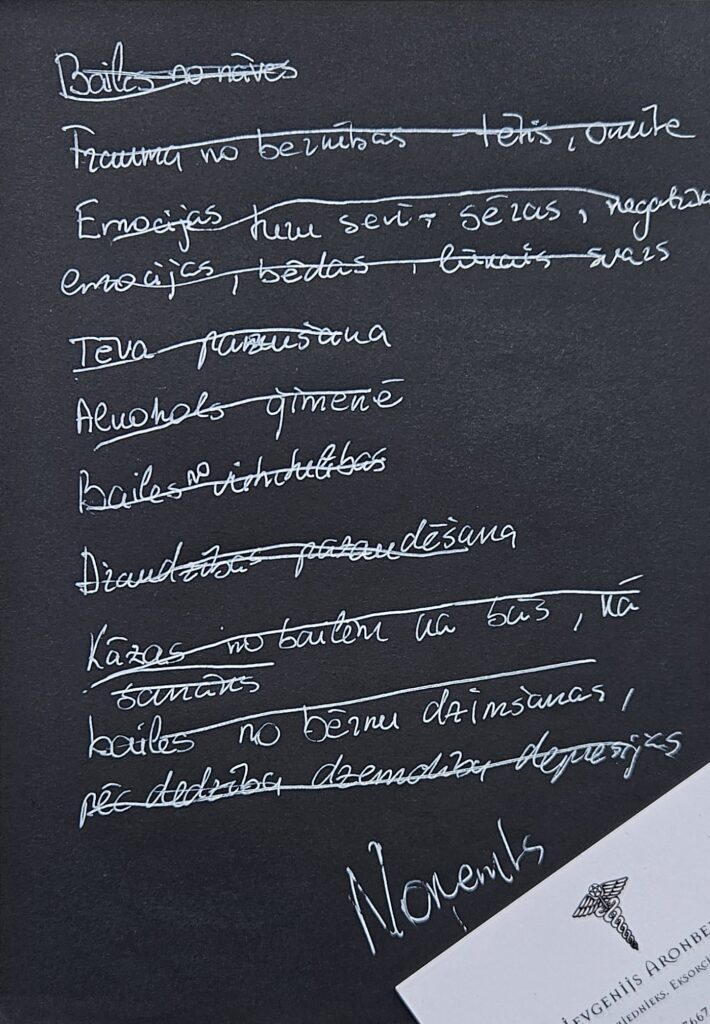 Bailes no nāves
Trauma no bernības - tētis, omīte
Emocijas turu sevī, sēras,
emocijas, bēdas, liekais svars
Tēva pazušana
Alkohols ģimenē
Bailes no vientulības
Draudzības pazaudēšana
Kāzas no bailēm kā būs, kā
sanāks
bailes no bērnu dzimšanas,
pēc dzemdību depresijas
Noņemts
JEVGENIJS